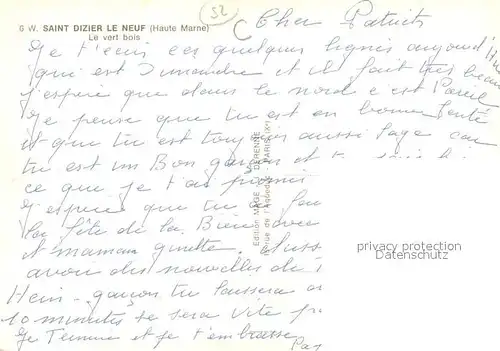 6 W. SAINT DIZIER LE NEUF (Haute Marne)
Le vert bois
52
Cher Patrick
Je t'ecris ces quelques lignes aujourd'hui
qui est Dimanche et il fait très beau
j'espère que dans le nord c'est Pareil
Je pense que tu est en bonne Santé
et que tu est toujours aussi sage car
tu est un Bon garçon et
ce que je t'ai promis
J'espère que tu
la fête de la
et maman ginette. Auss
avoir des nouvelles de
Hein garçon tu laissera
10 minutes se sera vite
Je Termine et je t'embrasse
Pat
Edition MAGE - DERENNE
rue de l'Aqueduc - PARIS (X°)
privacy protection
Datenschutz